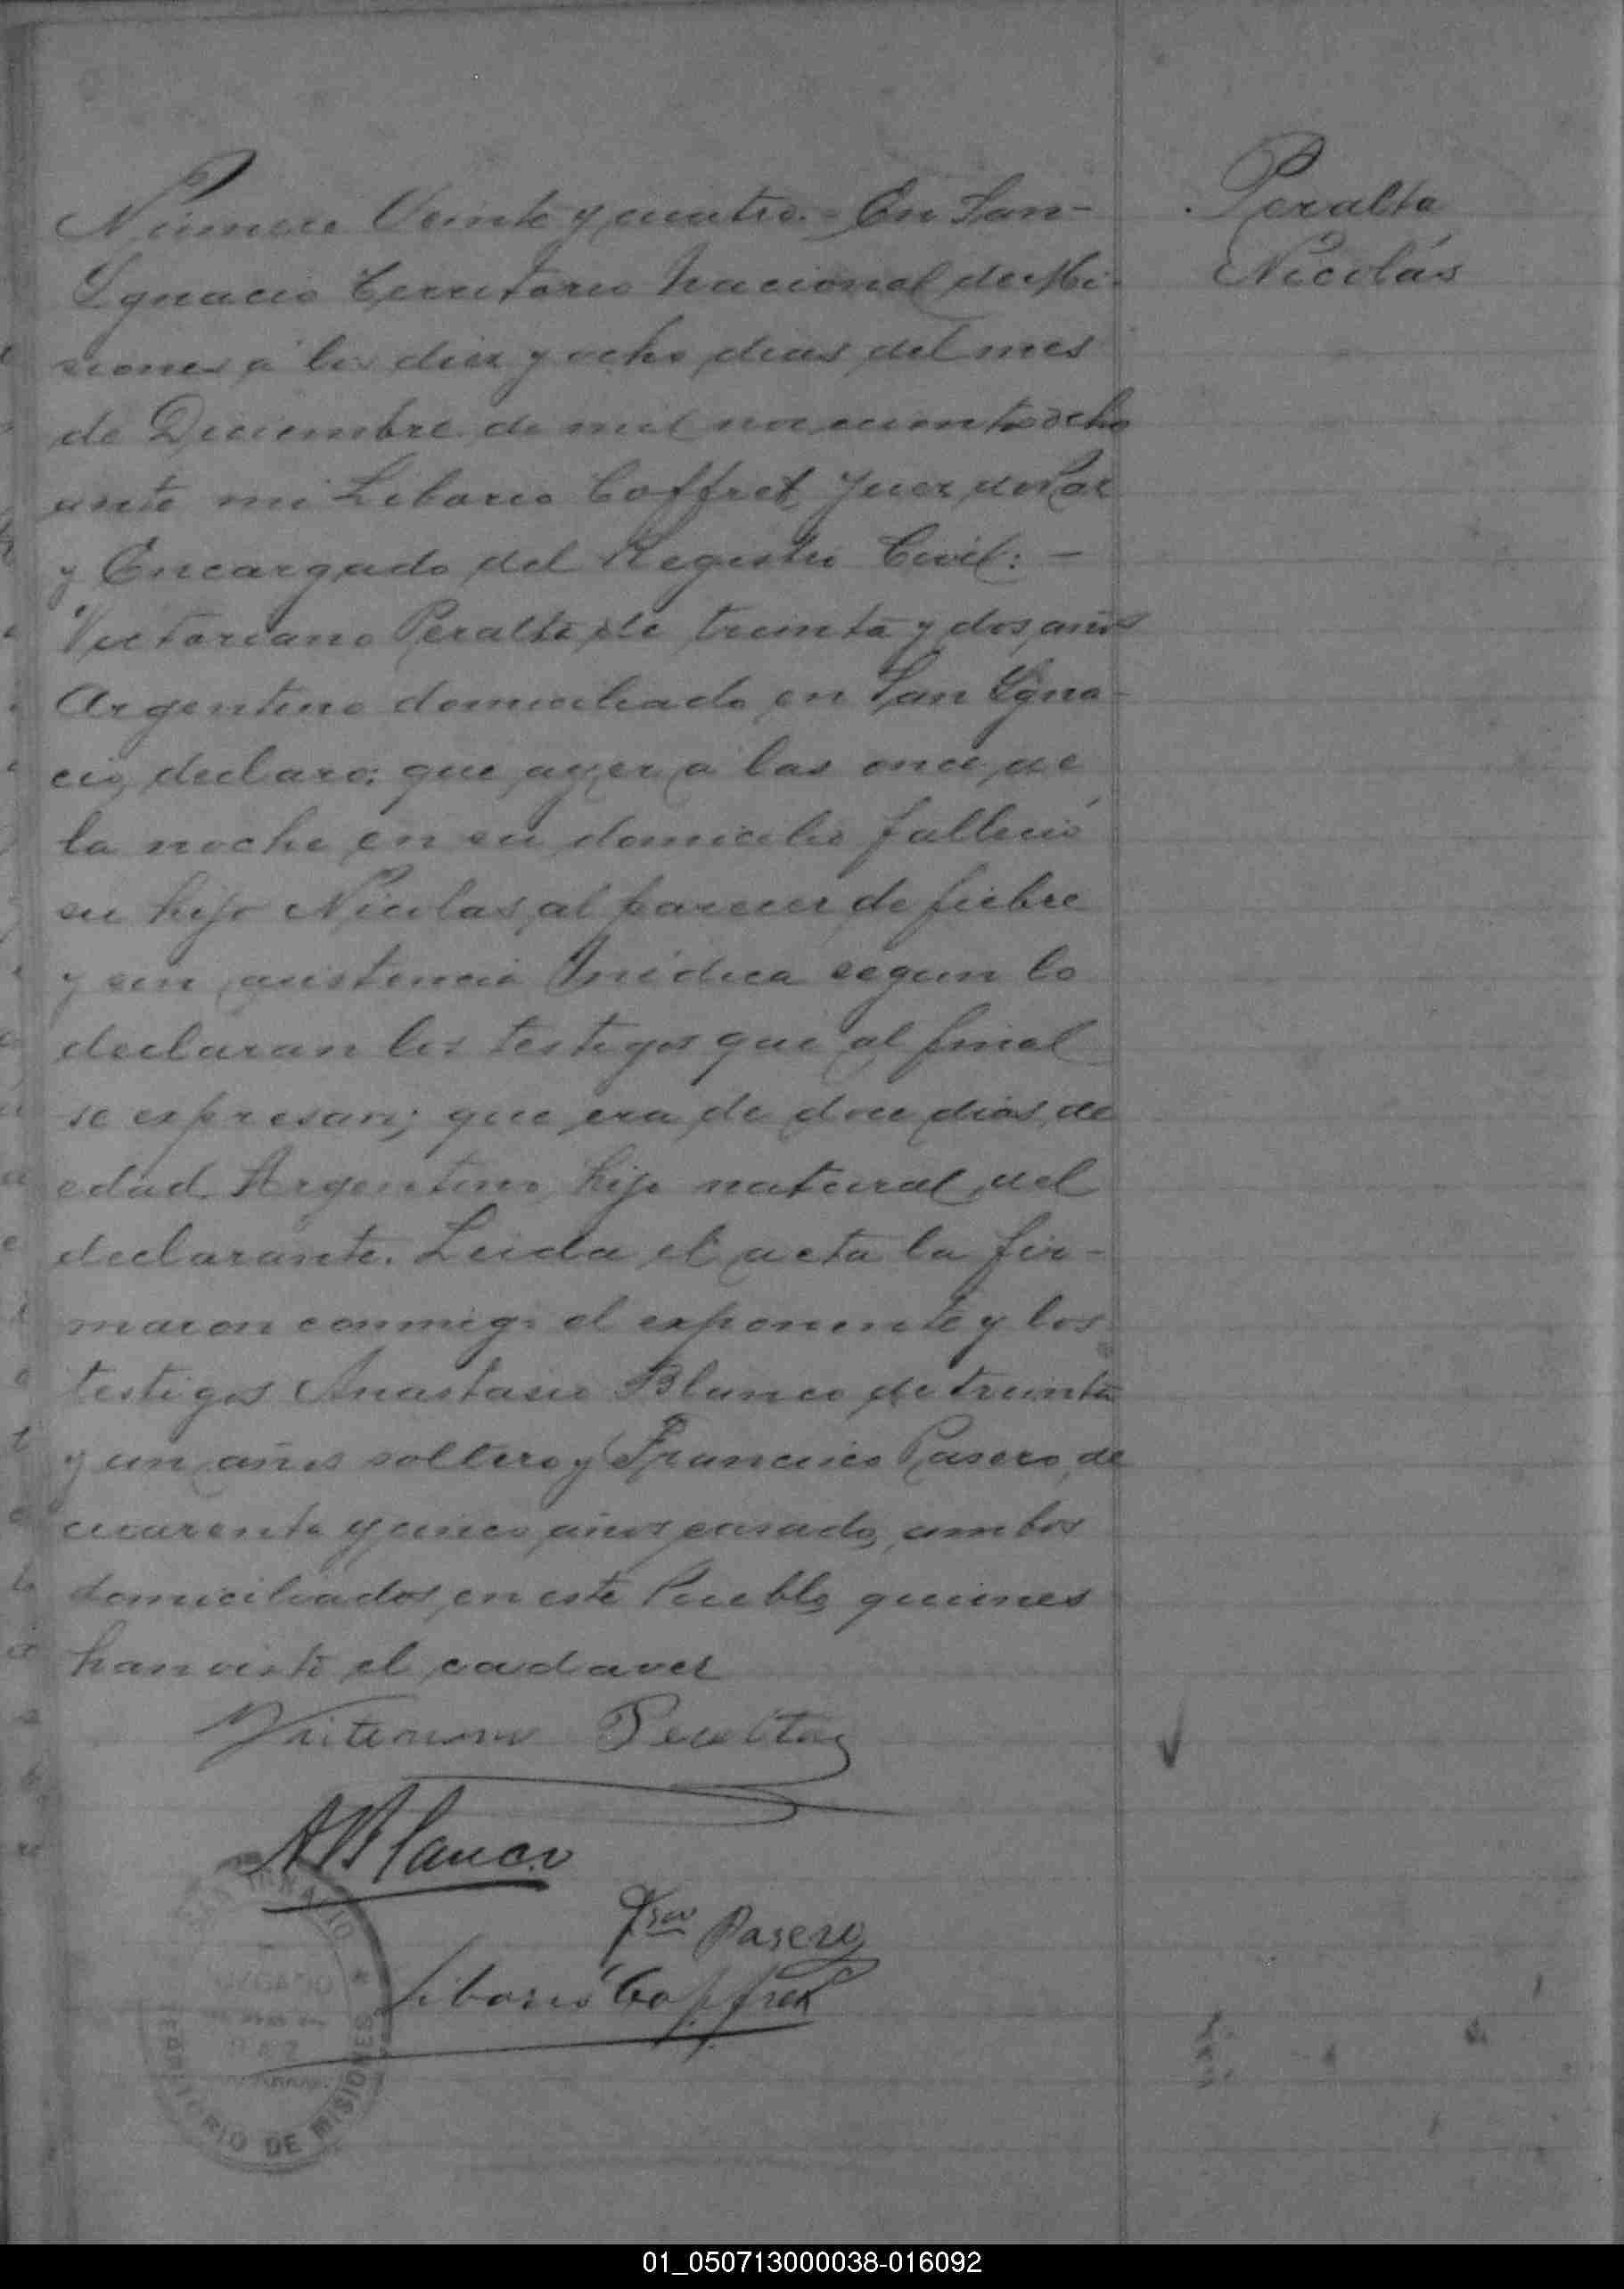 Peralta
Nicolás
Número Veinte y cuatro.- En San-
Ygnacio Territorio Nacional de Mi-
siones á los diez y ocho dias del mes
de Diciembre de mil novecientos ocho
ante mi Liborio Coffret Juez de Paz
y Encargado del Registro Civil: -
Victoriano Peralta de treinta y dos años
Argentino domiciliado en San Ygna-
cio, declaro: que ayer a las once de
la noche en su domicilio falleció
su hijo Nicolas, al parecer de fiebre
y sin asistencia médica segun lo
declaran los testigos que al final
se expresan; que era de doce dias de
edad Argentino, hijo natural del
declarante. Leida el acta la fir-
maron conmigo el exponente y los
testigos Anastasio Blanco de treinta
y un años soltero y Francisco Pasero, de
cuarenta y cinco años casado, ambos
domiciliados en este Pueblo, quienes
han visto el cadaver
Victoriano Peralta
ABlanco
Fsco Pasero
Liborio Coffret
SAN IGNACIO
JUZGADO
DE
PAZ
TERRITORIO DE MISIONES
01_050713000038-016092